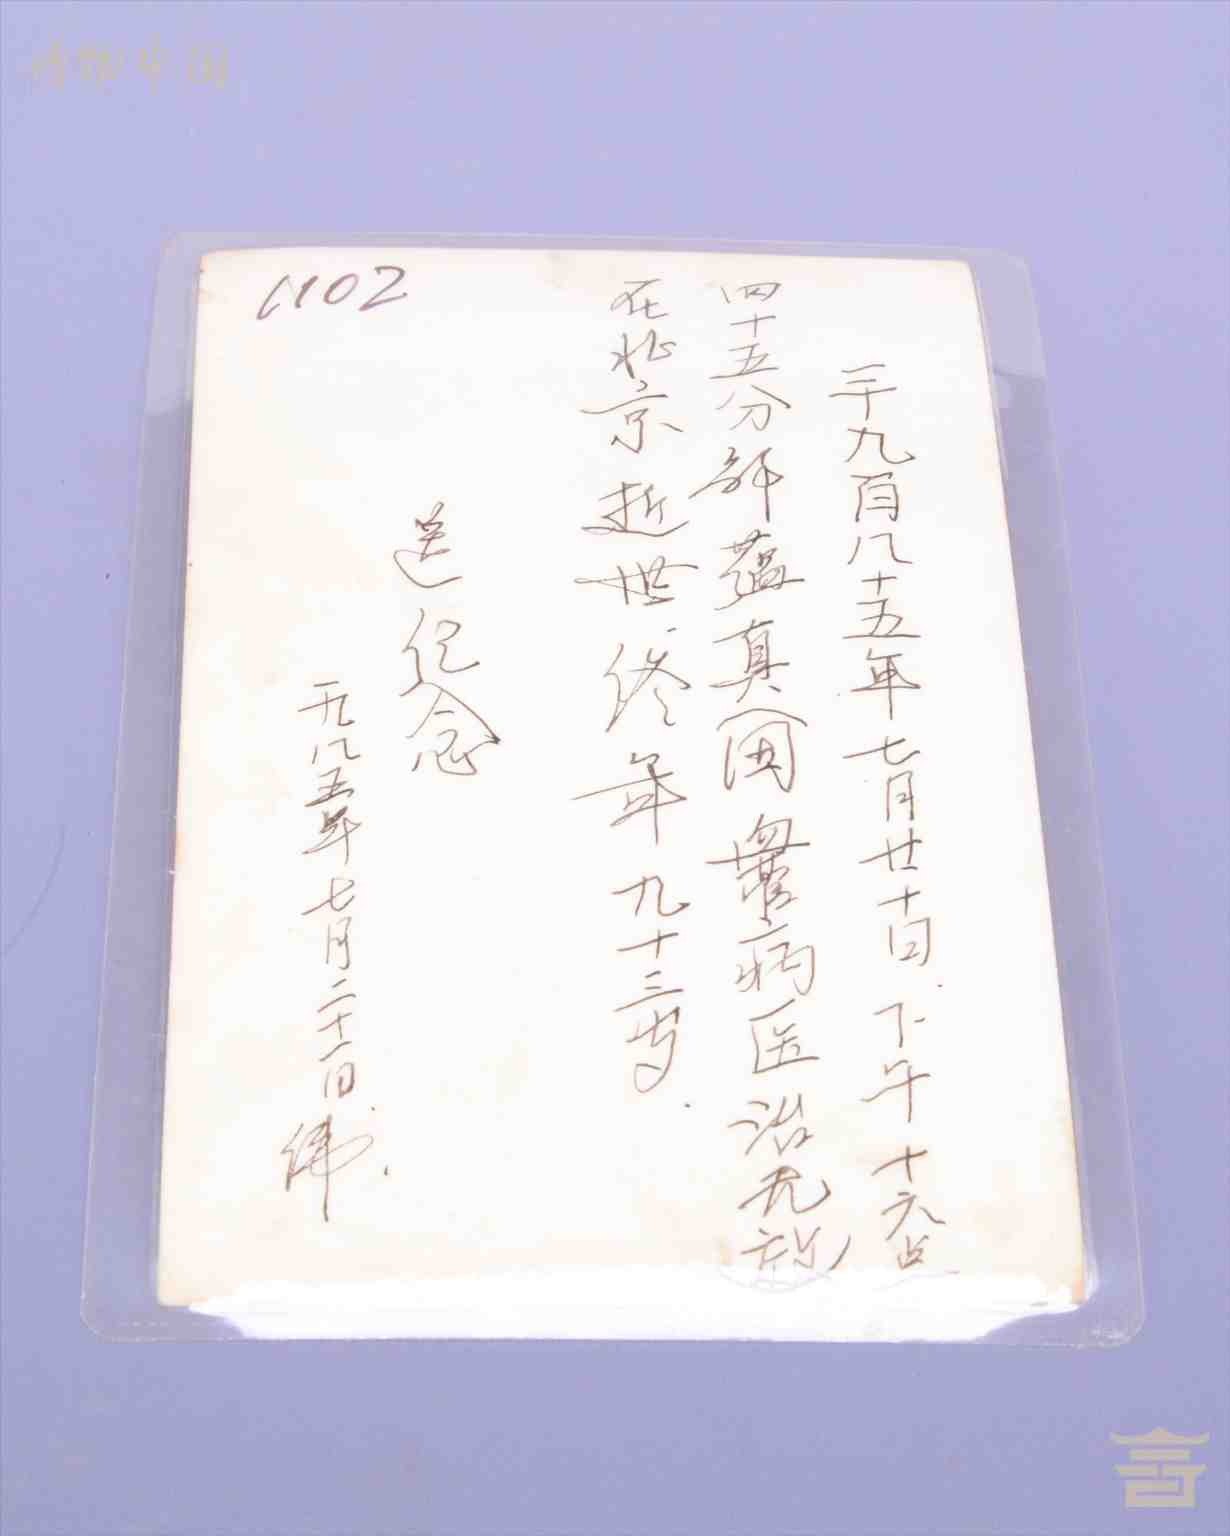 博物中国
1102
一千九百八十五年七月廿十日.下午十六点
四十五分郭蕴真因患病医治无效
在北京逝世终年九十三岁.
送纪念
一九八五年七月二十一日.